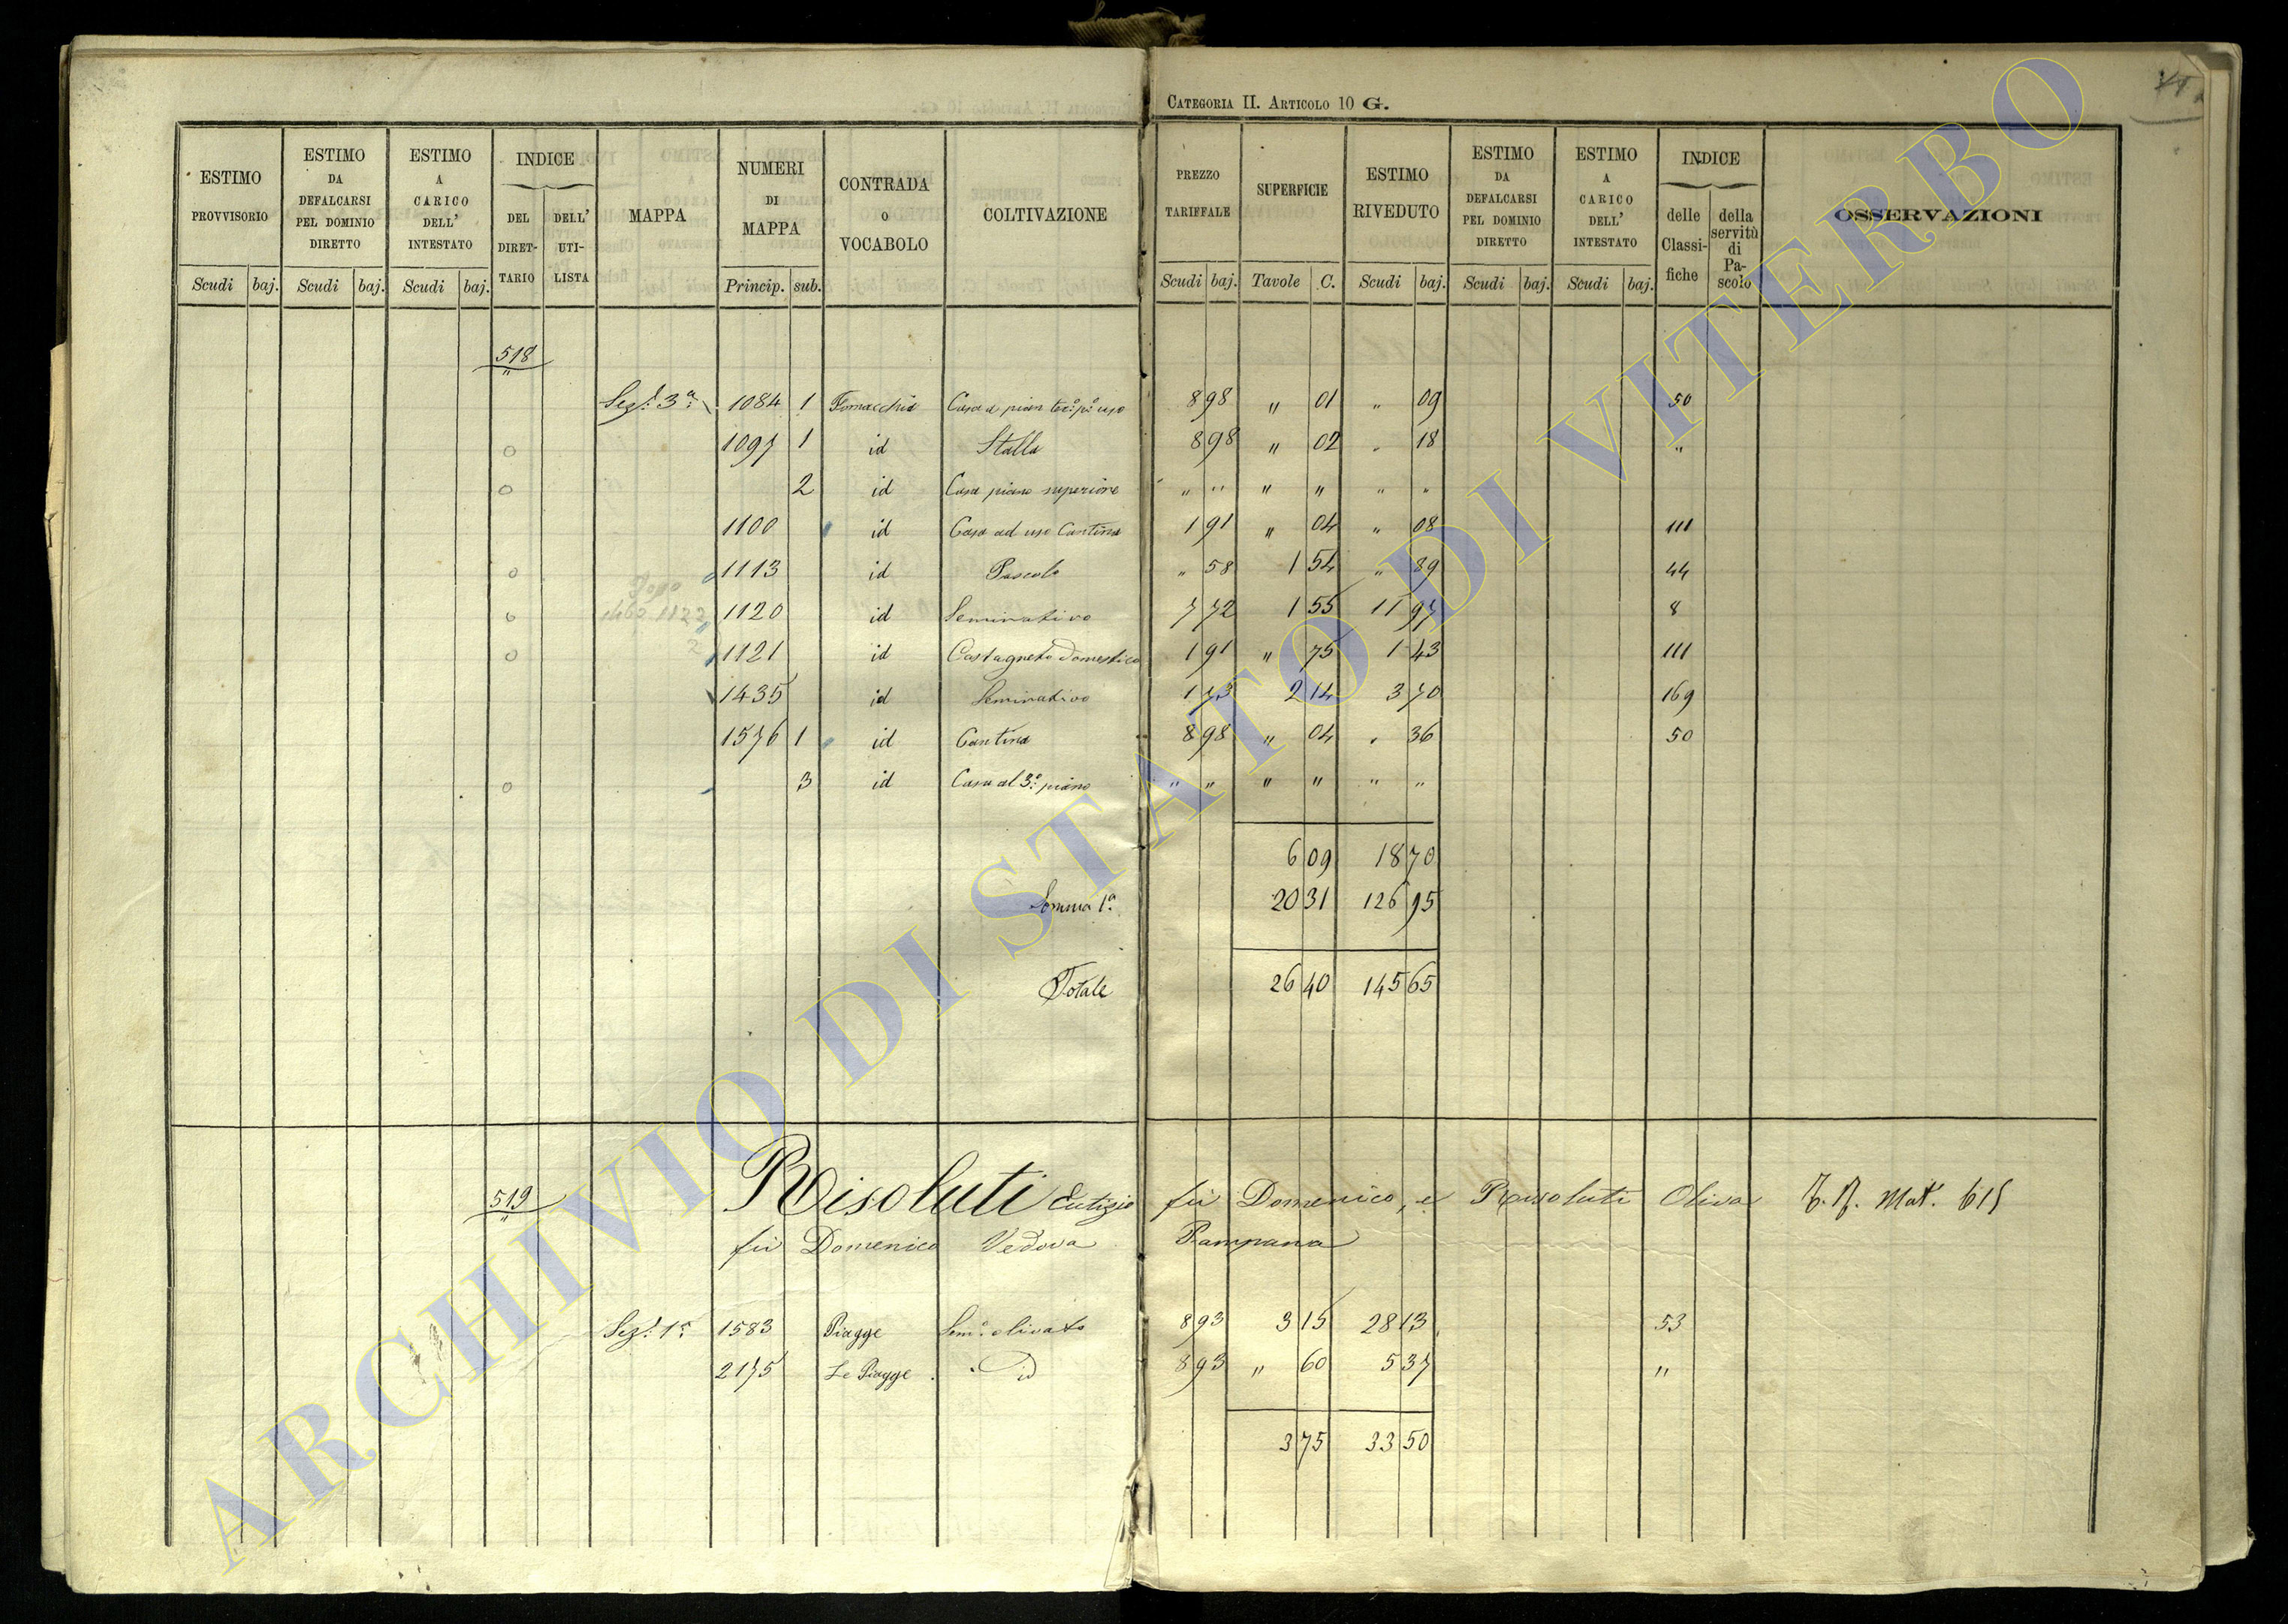 CATEGORIA II. ARTICOLO 10 G.
ESTIMO PROVVISORIO Scudi baj.
ESTIMO DA DEFALCARSI PEL DOMINIO DIRETTO Scudi baj.
ESTIMO A CARICO DELL' INTESTATO Scudi baj.
INDICE DEL DIRET-TARIO DELL' UTI-LISTA
MAPPA
NUMERI DI MAPPA Princip. sub.
CONTRADA O VOCABOLO
COLTIVAZIONE
PREZZO TARIFFALE Scudi baj.
SUPERFICIE Tavole C.
ESTIMO RIVEDUTO Scudi baj.
ESTIMO DA DEFALCARSI PEL DOMINIO DIRETTO Scudi baj.
ESTIMO A CARICO DELL' INTESTATO Scudi baj.
INDICE delle Classi-fiche della servitù di Pa-scolo
OSSERVAZIONI
518
Sez. 3a 1084 1 Casa a pian 8 98 " 01 " 09 50
1097 1 id Stalla 8 98 " 02 " 18 "
2 id Casa piano superiore " " " " " "
1100 id Casa ad uso Cantina 1 91 " 04 " 08 111
1113 id Pascolo " 58 1 54 " 89 44
1120 id Seminativo 7 72 1 55 11 97 8
1121 id Castagneto domestico 1 91 " 75 1 43 111
1435 id Seminativo 1 73 2 14 3 70 169
1576 1 id Cantina 8 98 " 04 " 36 50
3 id Casa al 3° piano " " " " " "
6 09 18 70
Somma 1a 20 31 126 95
Totale 26 40 145 65
519 Risoluti Eutizio fù Domenico, e Risoluti Oliva Mat. 615
fù Domenico Vedova Pampana
Sez. 1a 1583 Piagge Sem. olivato 8 93 3 15 28 13 53
2175 Le Piagge id 8 93 " 60 5 37 "
3 75 33 50
ARCHIVIO DI STATO DI VITERBO